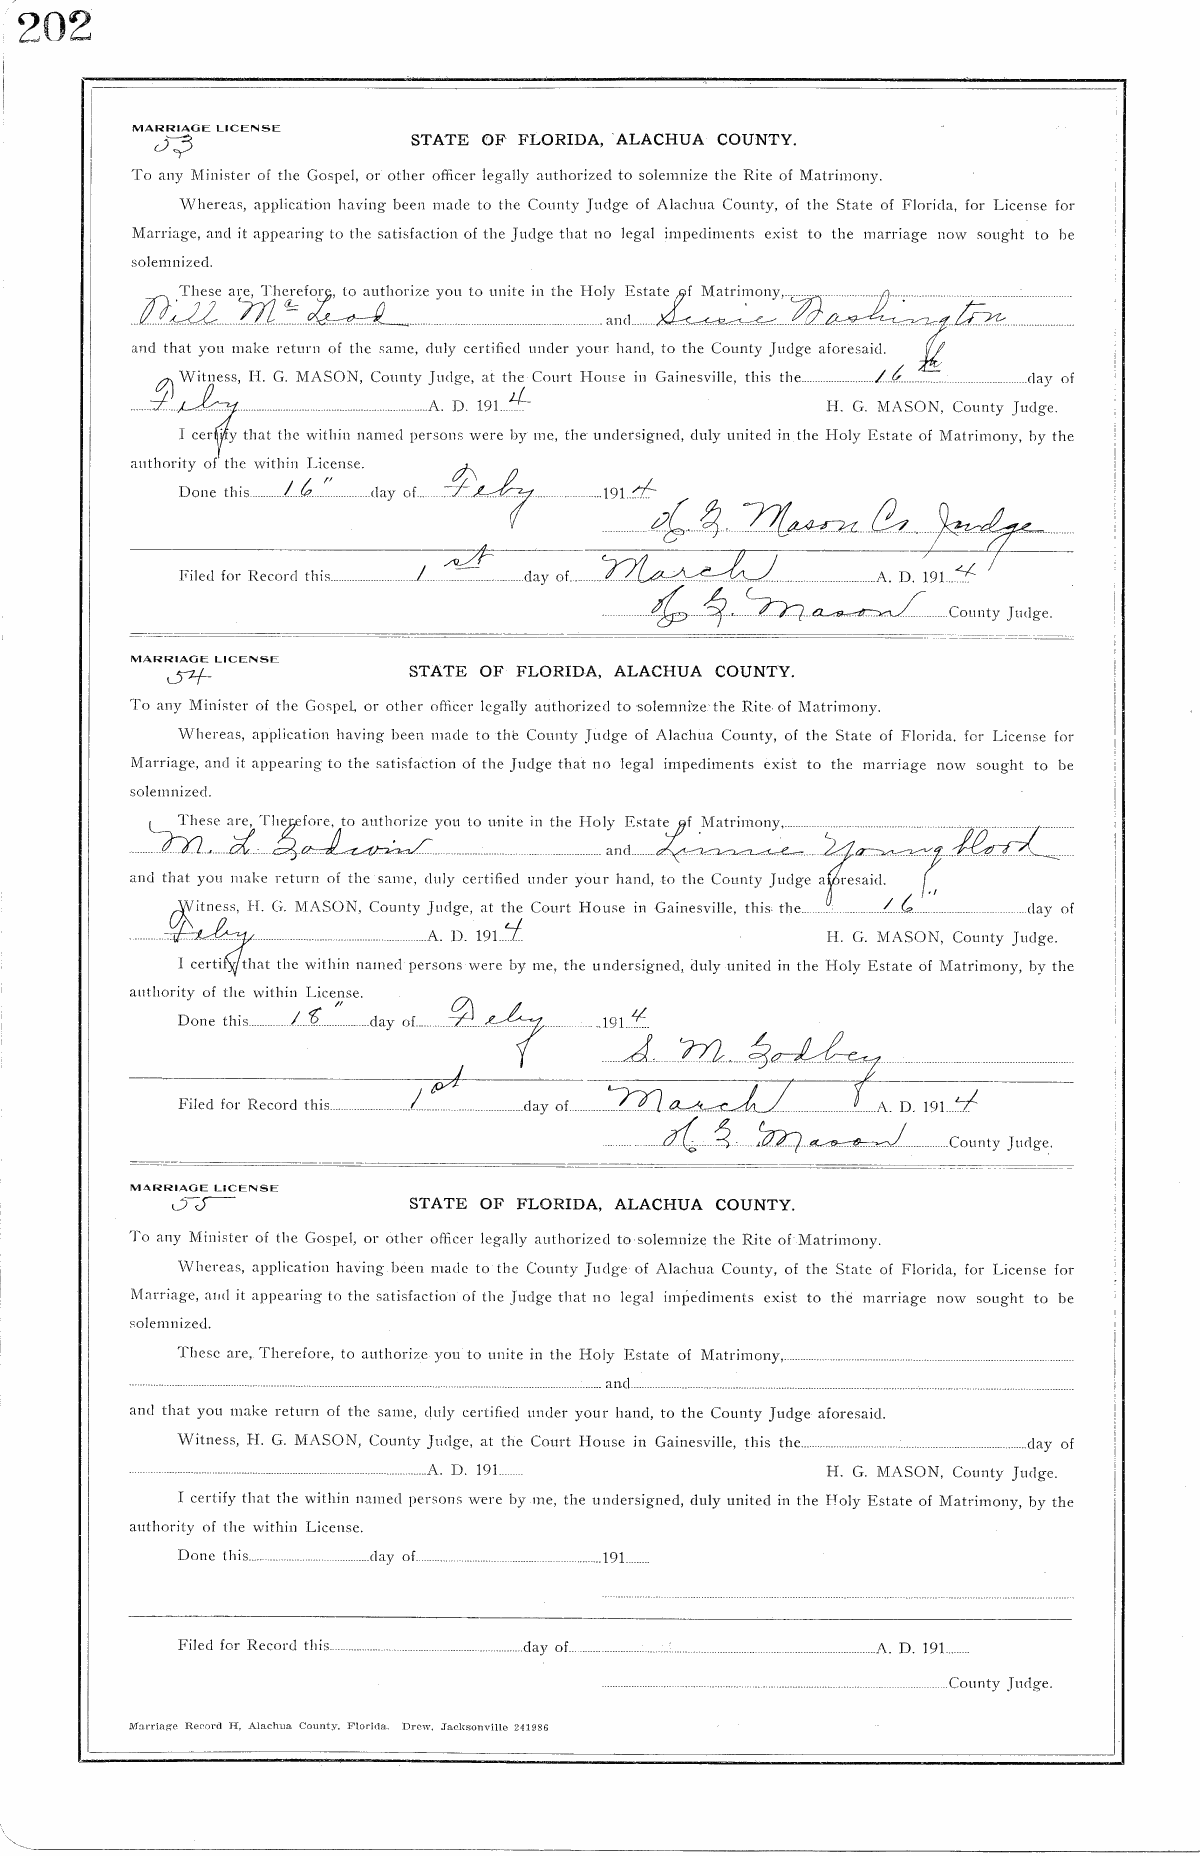 202
MARRIAGE LICENSE
53
STATE OF FLORIDA, ALACHUA COUNTY.
To any Minister of the Gospel, or other officer legally authorized to solemnize the Rite of Matrimony.
Whereas, application having been made to the County Judge of Alachua County, of the State of Florida, for License for
Marriage, and it appearing to the satisfaction of the Judge that no legal impediments exist to the marriage now sought to be
solemnized.
These are, Therefore, to authorize you to unite in the Holy Estate of Matrimony,
Will McLeod and Susie Washington
and that you make return of the same, duly certified under your hand, to the County Judge aforesaid.
Witness, H. G. MASON, County Judge, at the Court House in Gainesville, this the 16th day of
Feby A. D. 1914 H. G. MASON, County Judge.
I certify that the within named persons were by me, the undersigned, duly united in the Holy Estate of Matrimony, by the
authority of the within License.
Done this 16" day of Feby 1914
H. G. Mason Co. Judge
Filed for Record this 1st day of March A. D. 1914
H. G. Mason County Judge.
MARRIAGE LICENSE
54
STATE OF FLORIDA, ALACHUA COUNTY.
To any Minister of the Gospel, or other officer legally authorized to solemnize the Rite of Matrimony.
Whereas, application having been made to the County Judge of Alachua County, of the State of Florida, for License for
Marriage, and it appearing to the satisfaction of the Judge that no legal impediments exist to the marriage now sought to be
solemnized.
These are, Therefore, to authorize you to unite in the Holy Estate of Matrimony,
M. L. Godwin and Linnie Youngblood
and that you make return of the same, duly certified under your hand, to the County Judge aforesaid.
Witness, H. G. MASON, County Judge, at the Court House in Gainesville, this the 16" day of
Feby A. D. 1914 H. G. MASON, County Judge.
I certify that the within named persons were by me, the undersigned, duly united in the Holy Estate of Matrimony, by the
authority of the within License.
Done this 18" day of Feby 1914
S. M. Godbey
Filed for Record this 1st day of March A. D. 1914
H. G. Mason County Judge.
MARRIAGE LICENSE
55
STATE OF FLORIDA, ALACHUA COUNTY.
To any Minister of the Gospel, or other officer legally authorized to solemnize the Rite of Matrimony.
Whereas, application having been made to the County Judge of Alachua County, of the State of Florida, for License for
Marriage, and it appearing to the satisfaction of the Judge that no legal impediments exist to the marriage now sought to be
solemnized.
These are, Therefore, to authorize you to unite in the Holy Estate of Matrimony,
and
and that you make return of the same, duly certified under your hand, to the County Judge aforesaid.
Witness, H. G. MASON, County Judge, at the Court House in Gainesville, this the day of
A. D. 191 H. G. MASON, County Judge.
I certify that the within named persons were by me, the undersigned, duly united in the Holy Estate of Matrimony, by the
authority of the within License.
Done this day of 191
Filed for Record this day of A. D. 191
County Judge.
Marriage Record H, Alachua County, Florida. Drew, Jacksonville 241986